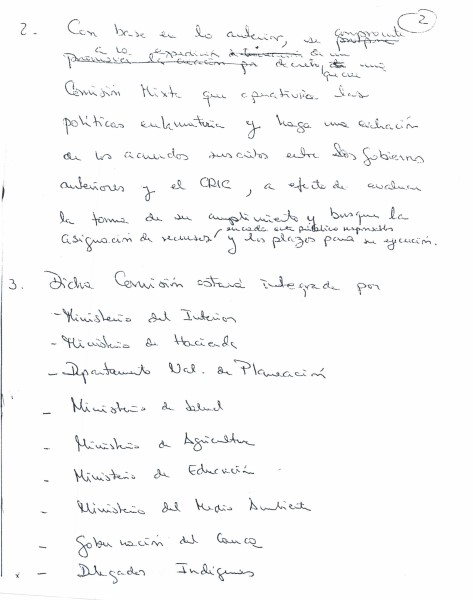 2
2. Con base en lo anterior, se compromete
a la expedición de un
promover la creación por decreto que cree una
Comisión Mixta que operativice las
políticas en la materia y haga una evaluación
de los acuerdos suscritos entre los Gobiernos
anteriores y el CRIC, a efecto de evaluar
la forma de su cumplimiento y busque la
en cada ente público responsable
asignación de recursos y los plazos para su ejecución.
3. Dicha Comisión estará integrada por
- Ministerio del Interior
- Ministerio de Hacienda
- Departamento Nal. de Planeación
- Ministerio de Salud
- Ministerio de Agricultura
- Ministerio de Educación
- Ministerio del Medio Ambiente
- Gobernación del Cauca
- Delegados Indígenas